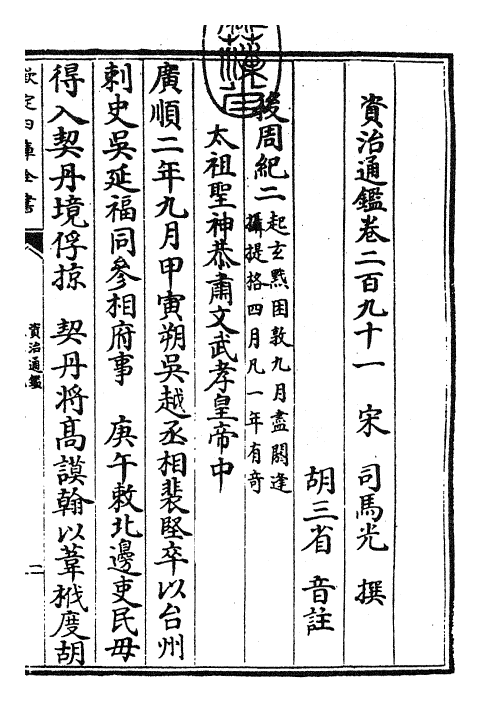 資治通鑑卷二百九十一 宋 司馬光 撰
胡三省 音註
後周紀二 起玄黓困敦九月盡閼逢
攝提格四月凡一年有奇
太祖聖神恭肅文武孝皇帝中
廣順二年九月甲寅朔吳越丞相裴堅卒以台州
刺史吳延福同參相府事 庚午敕北邊吏民毋
得入契丹境俘掠 契丹將高謨翰以葦栰度胡
欽定四庫全書
資治通鑑